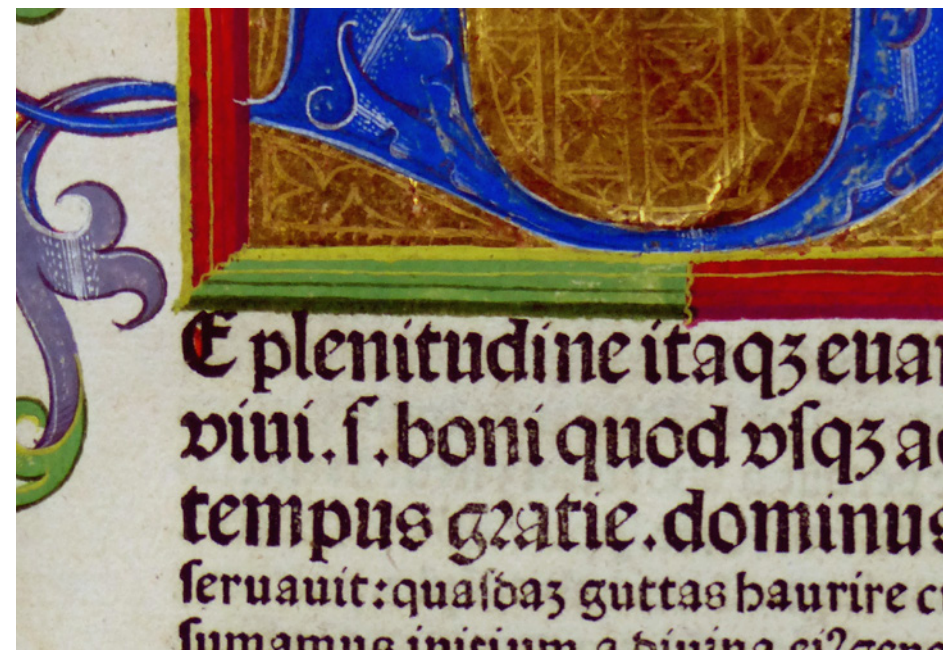 E plenitudine itaqꝫ eua
viui.ſ.boni quod vſqꝫ a
tempus gratie.dominus
ſeruauit:quaſdaꝫ guttas haurire c
ſumamus initium a diuina ei⁹gene